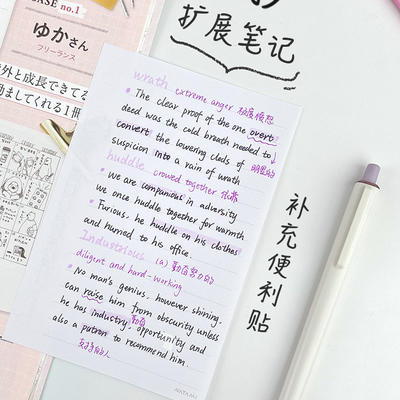 no.1
ゆかさん
フリーランス
外と成長できてる
励ましてくれる1冊
扩展笔记
wrath extreme anger 极度愤怒
The clear proof of the one overt
deed was the cold breath needed to
convert the lowering clods of 明显的
suspicion into a rain of wrath
huddle crowed together 依靠
we are companions in adversity
we once huddle together for warmth
Furious, he huddle on his clothes
and hurried to his office.
Industrious (a) 勤奋努力的
diligent and hard-working
No man's genius, however shining,
can raise him from obscurity unless
he has industry, opportunity and
勤奋
also a patron to recommend him.
补充便利贴